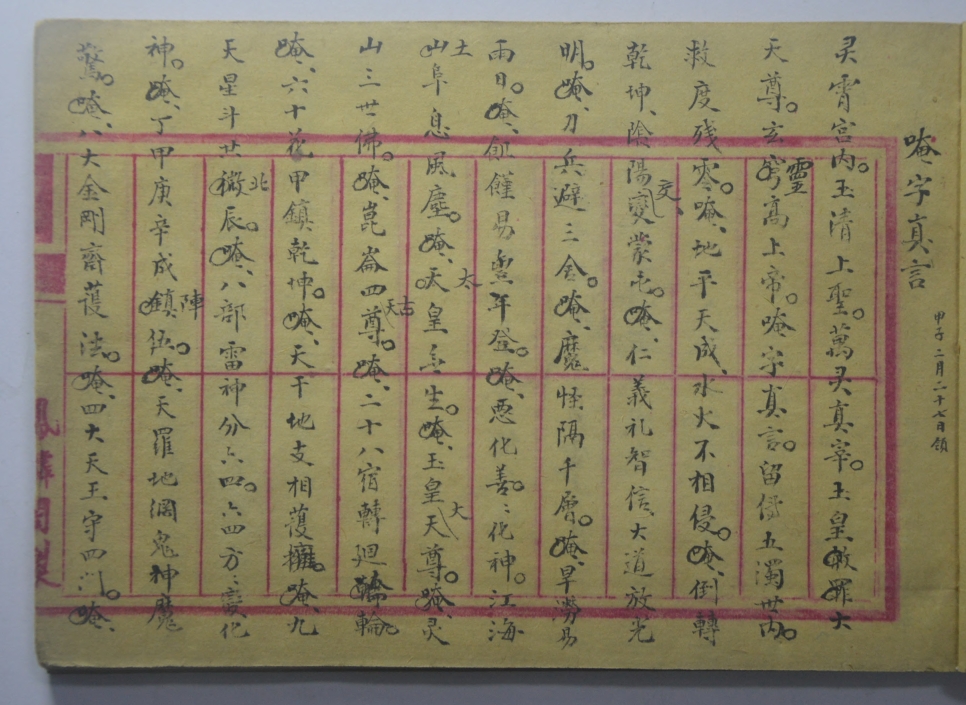 唵字真言
甲子二月二十七日領
灵霄宮内。玉清上聖。萬灵真宰。玉皇赦罪大
天尊。玄穹靈高上帝。唵字真言。留傳五濁世内。
救度残零。唵、地平天成、水火不相侵。唵、倒轉
乾坤、陰陽變交、蒙屯。唵、仁義礼智信、大道放光
明。唵、刀兵避三舍。唵、魔怪隔千層。唵、旱澇易
雨日。唵、飢饉易豊年登。唵、惡化善。〻化神。江海
山土阜息風塵。唵、天太皇無生。唵、玉皇天大尊。唵、灵
山三世佛。唵、崑崙四天古尊。唵、二十八宿轉廻輪。
唵、六十花甲鎮乾坤。唵、天干地支相護擁。唵、九
天星斗共北辰。唵、八部雷神分六四。六四方〻變化
神。唵、丁甲庚辛成鎮陣伍。唵、天羅地網鬼神魔
驚。唵、八大金剛齊護法。唵、四大天王守四門。唵、